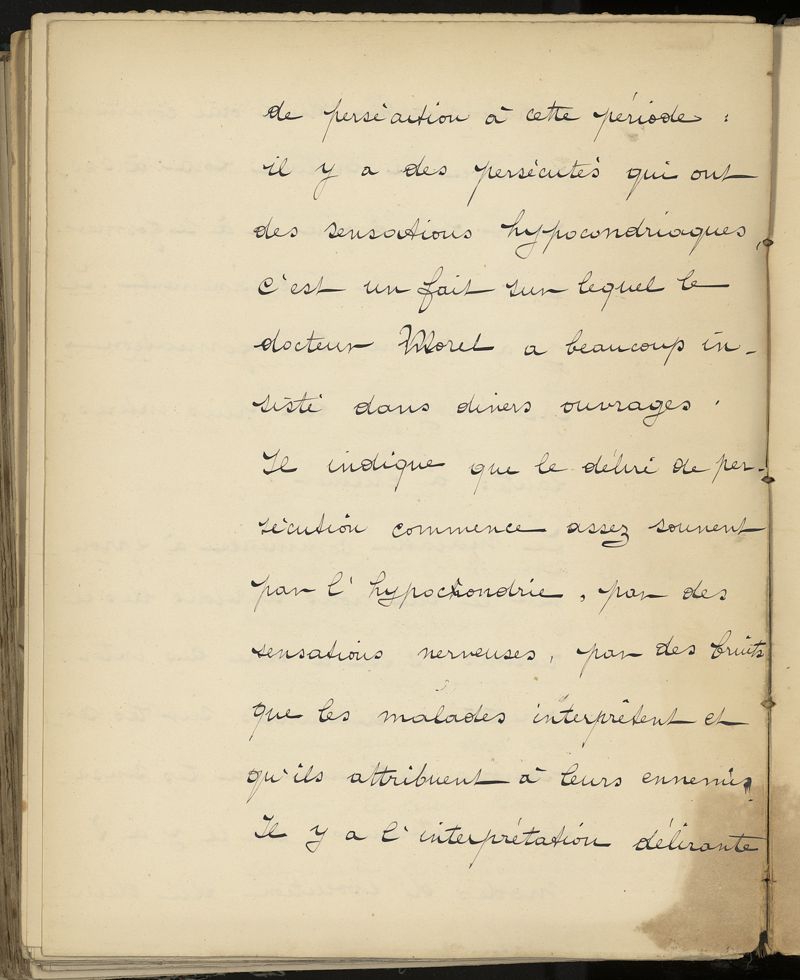 de persécution à cette période :
il y a des persécutés qui ont
des sensations hypocondriaques,
c'est un fait sur lequel le
docteur Morel a beaucoup in-
sisté dans divers ouvrages.
Il indique que le déliré de per-
sécution commence assez souvent
par l'hypochondrie, par des
sensations nerveuses, par des bruits
que les malades interprètent et
qu'ils attribuent à leurs ennemis.
Il y a l'interprétation délirante